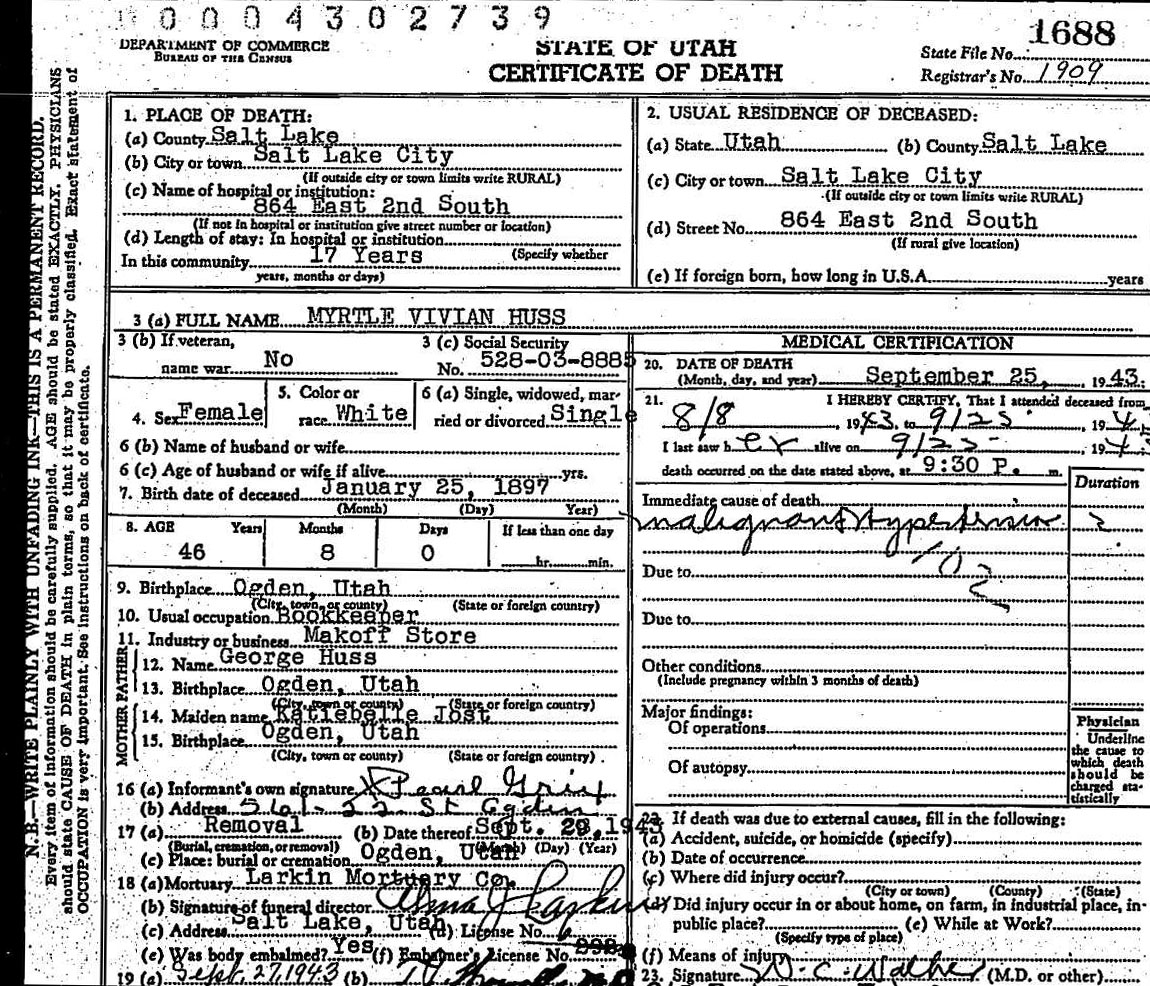 0004302739
DEPARTMENT OF COMMERCE
BUREAU OF THE CENSUS
STATE OF UTAH
CERTIFICATE OF DEATH
State File No. 1688
Registrar's No. 1909
N.B.—WRITE PLAINLY WITH UNFADING INK—THIS IS A PERMANENT RECORD.
Every item of information should be carefully supplied. AGE should be stated EXACTLY. PHYSICIANS
should state CAUSE OF DEATH in plain terms, so that it may be properly classified. Exact statement of
OCCUPATION is very important. See instructions on back of certificate.
1. PLACE OF DEATH:
(a) County Salt Lake
(b) City or town Salt Lake City
(If outside city or town limits write RURAL)
(c) Name of hospital or institution:
864 East 2nd South
(If not in hospital or institution give street number or location)
(d) Length of stay: In hospital or institution
(Specify whether
In this community 17 Years
years, months or days)
2. USUAL RESIDENCE OF DECEASED:
(a) State Utah (b) County Salt Lake
(c) City or town Salt Lake City
(If outside city or town limits write RURAL)
(d) Street No. 864 East 2nd South
(If rural give location)
(e) If foreign born, how long in U.S.A. years
3 (a) FULL NAME MYRTLE VIVIAN HUSS
3 (b) If veteran,
name war No
3 (c) Social Security
No. 528-03-8885
4. Sex Female
5. Color or
race White
6 (a) Single, widowed, mar-
ried or divorced Single
6 (b) Name of husband or wife
6 (c) Age of husband or wife if alive yrs.
7. Birth date of deceased January 25, 1897
(Month) (Day) Year)
8. AGE Years Months Days If less than one day
46 8 0 hr. min.
9. Birthplace Ogden, Utah
(City, town, or county) (State or foreign country)
10. Usual occupation Bookkeeper
11. Industry or business Makoff Store
FATHER
12. Name George Huss
13. Birthplace Ogden, Utah
(City, town or county) (State or foreign country)
MOTHER
14. Maiden name Katiebelle Jost
15. Birthplace Ogden, Utah
(City, town or county) (State or foreign country)
16 (a) Informant's own signature X Pearl
(b) Address 561-22 St Ogden
17 (a) Removal (b) Date thereof Sept. 1943
(Burial, cremation, or removal) (Month) (Day) (Year)
(c) Place: burial or cremation Ogden, Utah
18 (a) Mortuary Larkin Mortuary Co.
(b) Signature of funeral director Alma J Larkin
(c) Address Salt Lake, Utah (d) License No. 6
(e) Was body embalmed? Yes (f) Embalmer's License No.
19 (a) Sept. 27, 1943 (b)
MEDICAL CERTIFICATION
20. DATE OF DEATH
(Month, day, and year) September 25, 1943.
21. I HEREBY CERTIFY, That I attended deceased from
8/8, 1943, to 9/25, 194
I last saw her alive on 9/25 194
death occurred on the date stated above, at 9:30 P. m.
Duration
Immediate cause of death
malignant hypertension ?
102
Due to
Due to
Other conditions
(Include pregnancy within 3 months of death)
Major findings:
Of operations
Of autopsy
Physician
Underline
the cause to
which death
should be
charged sta-
tistically
22. If death was due to external causes, fill in the following:
(a) Accident, suicide, or homicide (specify)
(b) Date of occurrence
(c) Where did injury occur?
(City or town) (County) (State)
(d) Did injury occur in or about home, on farm, in industrial place, in-
public place? (e) While at Work?
(Specify type of place)
(f) Means of injury
23. Signature W. C. Walker (M.D. or other)